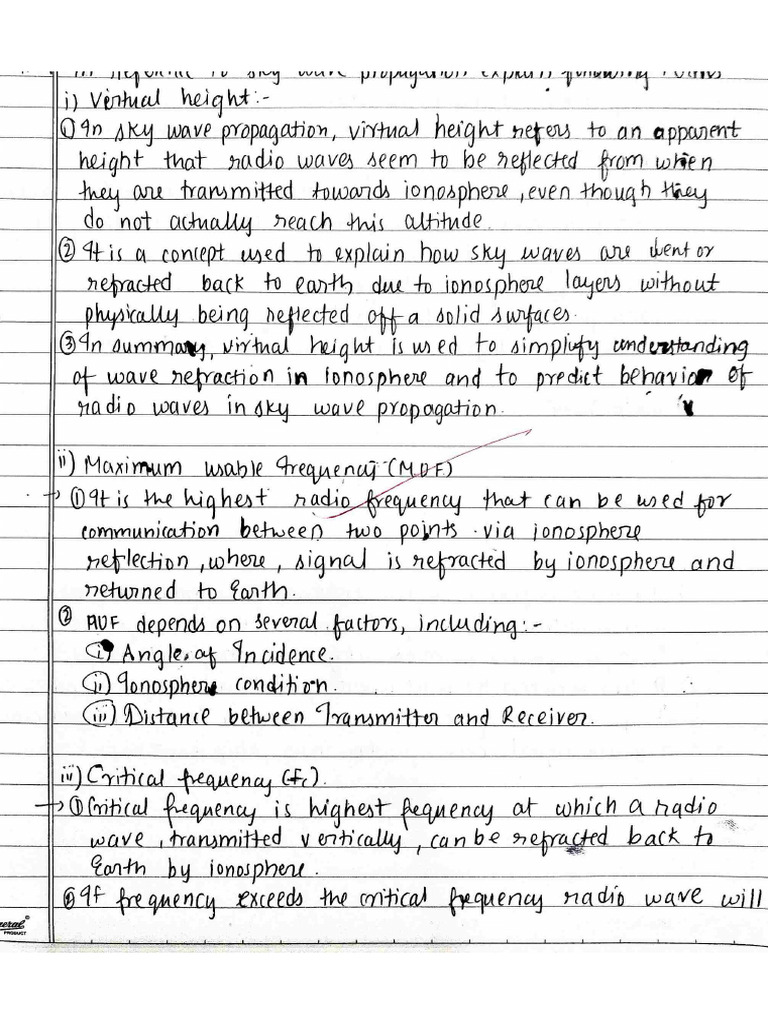 In reference to sky wave propagation explain following terms
i) Virtual height:-
① In sky wave propagation, virtual height refers to an apparent
height that radio waves seem to be reflected from when
they are transmitted towards ionosphere, even though they
do not actually reach this altitude.
② It is a concept used to explain how sky waves are bent or
refracted back to earth due to ionosphere layers without
physically being reflected off a solid surfaces.
③ In summary, virtual height is used to simplify understanding
of wave refraction in ionosphere and to predict behavior of
radio waves in sky wave propagation.
ii) Maximum usable frequency (MUF)
→ ① It is the highest radio frequency that can be used for
communication between two points via ionosphere
reflection, where, signal is refracted by ionosphere and
returned to Earth.
② MUF depends on several factors, including:-
i) Angle of Incidence.
ii) Ionosphere condition.
iii) Distance between Transmitter and Receiver.
iii) Critical frequency (fc).
→ ① Critical frequency is highest fequency at which a radio
wave, transmitted vertically, can be refracted back to
Earth by ionosphere.
② If frequency exceeds the critical frequency radio wave will
PRODUCT